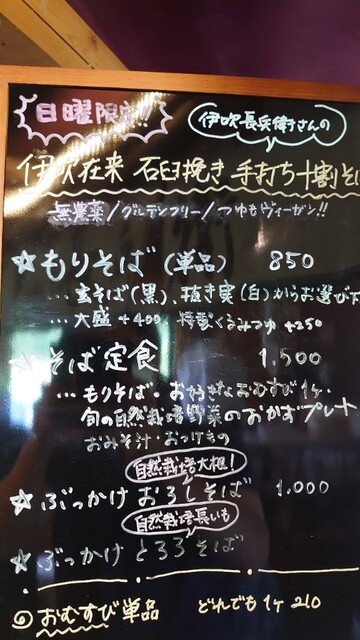 日曜限定!!
伊吹長兵衛さんの
伊吹在来 石臼挽き 手打ち十割そば
無農薬/グルテンフリー/つゆもヴィーガン!!
☆もりそば(単品) 850
… 玄そば(黒)、抜き実(白)からお選び下
… 大盛 +400、特製くるみつゆ +250
☆そば定食 1,500
… もりそば・お好きなおむすび1ヶ・
旬の自然栽培野菜のおかずプレート
おみそ汁・おつけもの
自然栽培大根!
☆ぶっかけおろしそば 1,000
自然栽培長いも
☆ぶっかけとろろそば
◎おむすび単品 どれでも1ヶ 210